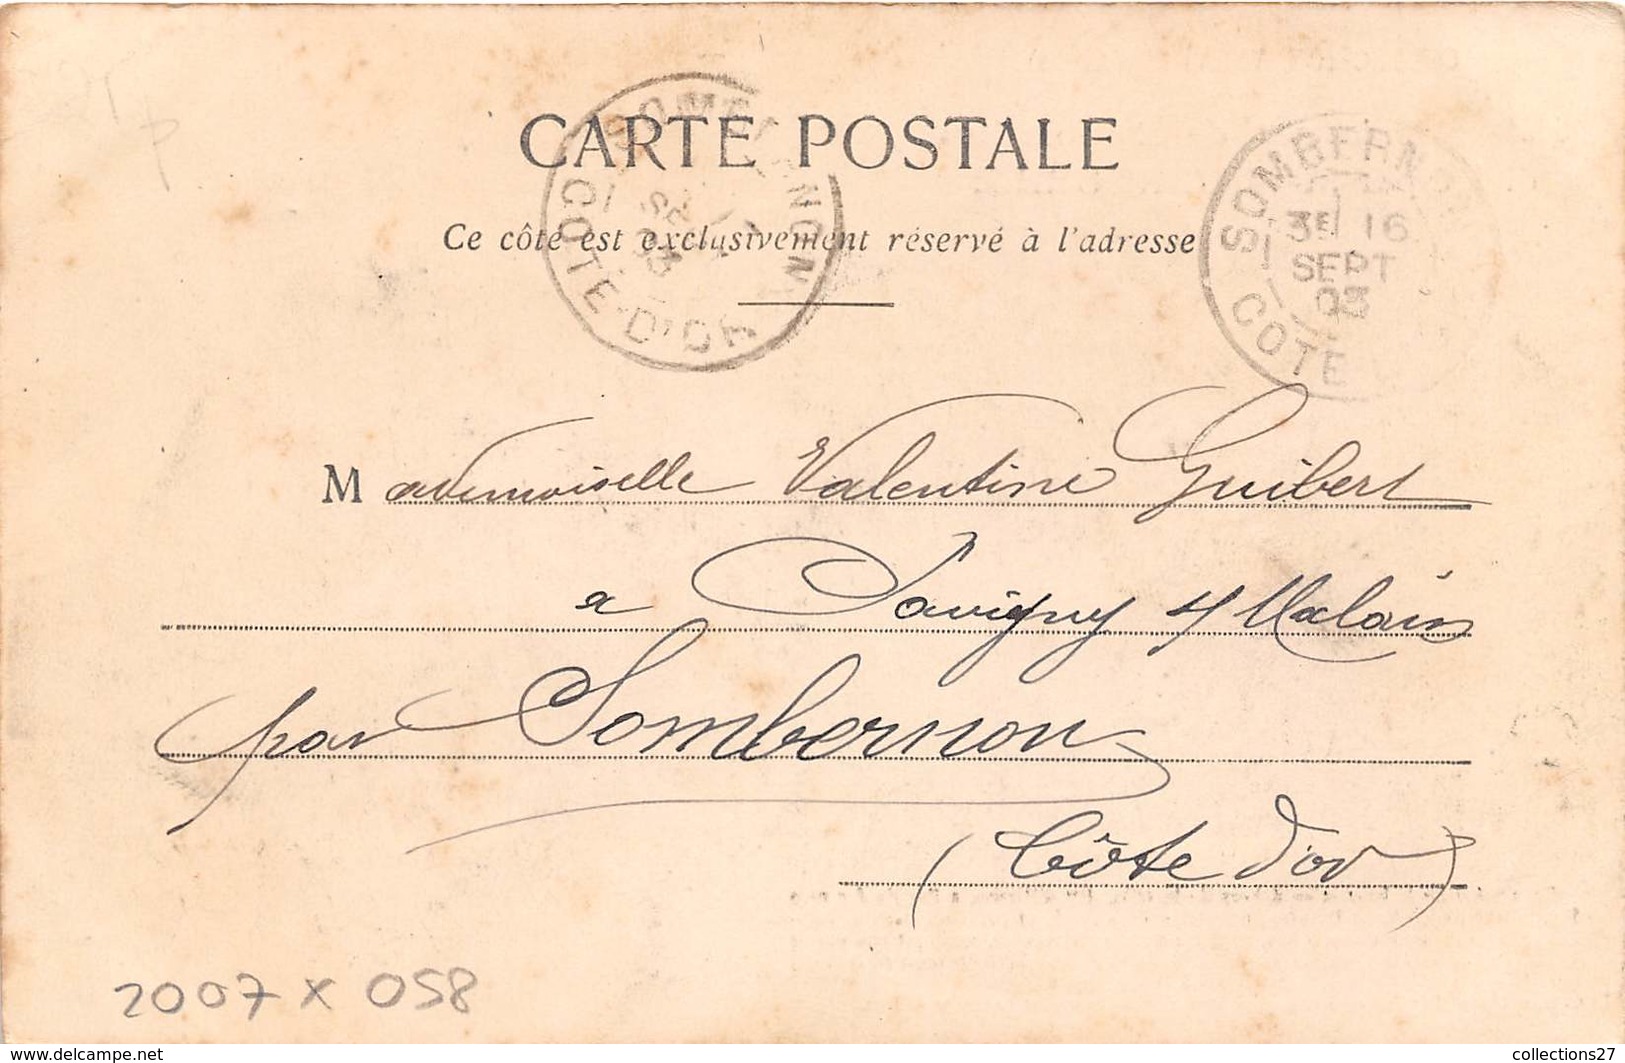 CARTE POSTALE
Ce côté est exclusivement réservé à l'adresse
SOMBERNON
SE
03
COTE-D'OR
SOMBERNON
3E 16
SEPT
03
COTE
Mademoiselle Valentine Guibert
a Savigny s/ Malain
par Sombernon
(Côte d'or)
2007 x 058
www.delcampe.net
collections27